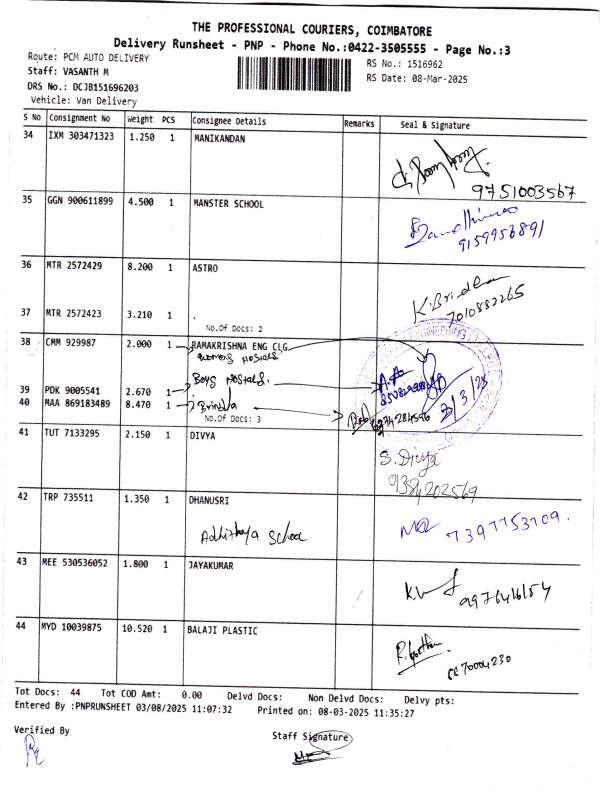 THE PROFESSIONAL COURIERS, COIMBATORE
Delivery Runsheet - PNP - Phone No.:0422-3505555 - Page No.:3
Route: PCM AUTO DELIVERY
RS No.: 1516962
Staff: VASANTH M
RS Date: 08-Mar-2025
DRS No.: DCJB151696203
Vehicle: Van Delivery
S No Consignment No Weight PCS Consignee Details Remarks Seal & Signature
34 IXM 303471323 1.250 1 MANIKANDAN
9751003567
35 GGN 900611899 4.500 1 MANSTER SCHOOL
9159956891
36 MTR 2572429 8.200 1 ASTRO
K. Bridha
7010882265
37 MTR 2572423 3.210 1 .
No.Of Docs: 2
38 CMM 929987 2.000 1 RAMAKRISHNA ENG CLG
womens Hostals
Boys Hostals.
39 PDK 9005541 2.670 1
40 MAA 869183489 8.470 1 Brindha
No.Of Docs: 3
8/3/25
41 TUT 7133295 2.150 1 DIVYA
S. Divya
9384202569
42 TRP 735511 1.350 1 DHANUSRI
Adhithya School
7397753109.
43 MEE 530536052 1.800 1 JAYAKUMAR
44 MYD 10039875 10.520 1 BALAJI PLASTIC
8870004230
Tot Docs: 44 Tot COD Amt: 0.00 Delvd Docs: Non Delvd Docs: Delvy pts:
Entered By :PNPRUNSHEET 03/08/2025 11:07:32 Printed on: 08-03-2025 11:35:27
Verified By
Staff Signature